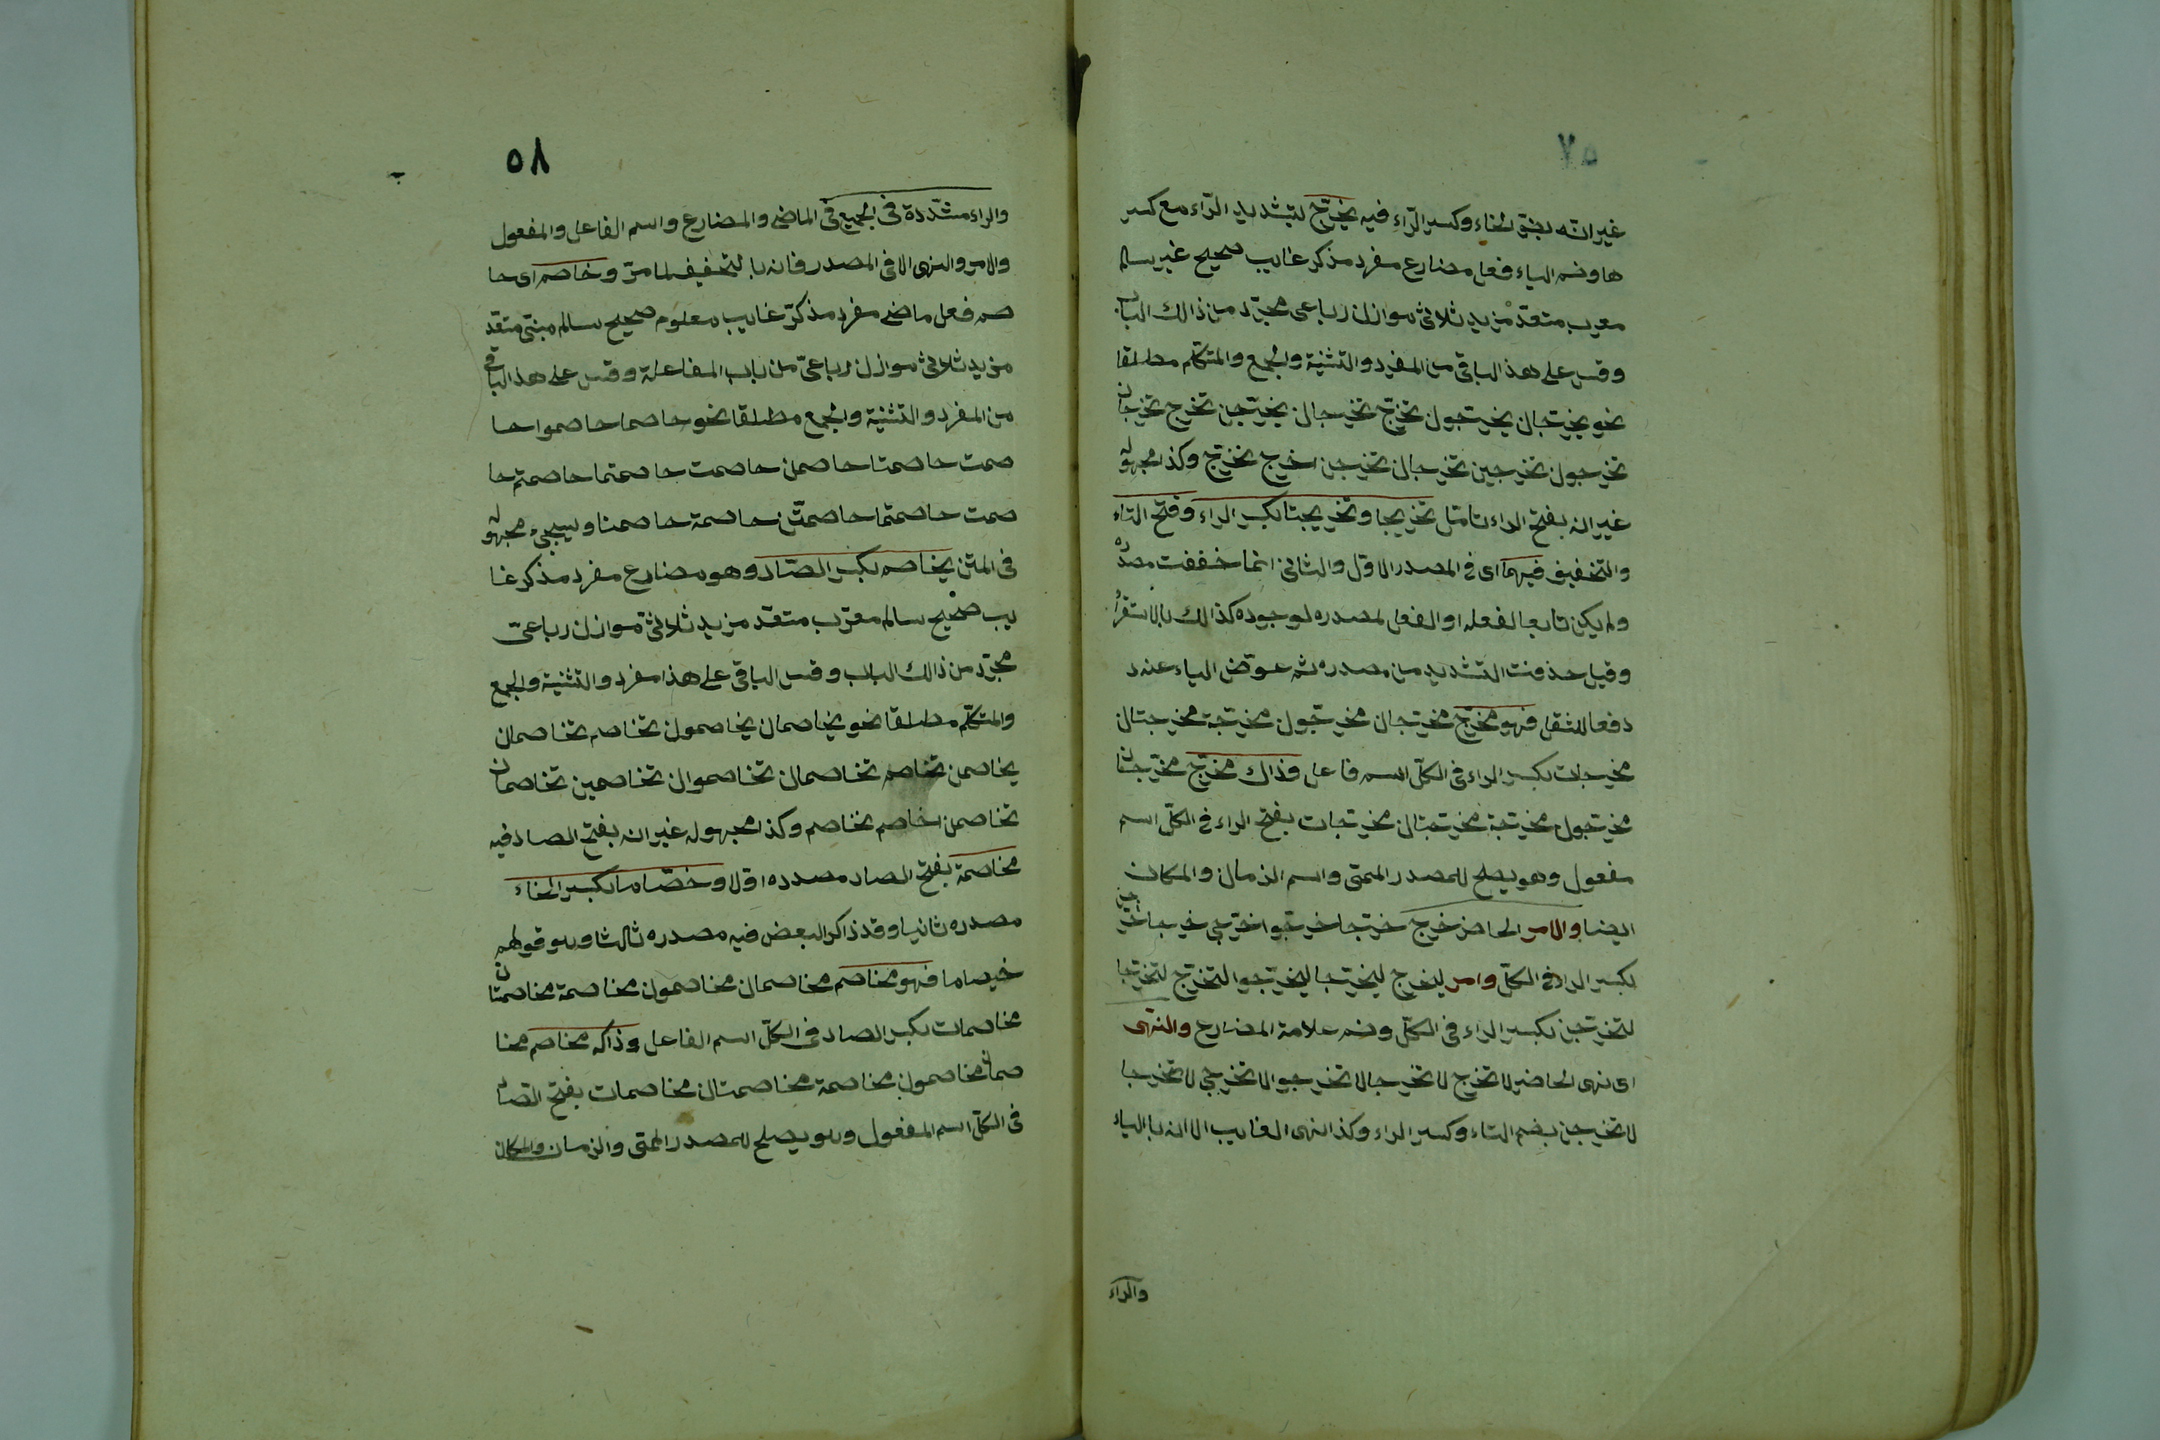 ٥٧
غير انّه بفتح الخاء وكسر الرّاء فيه يخرّج بتشديد الرّاء مع كسر
ها وضم الياء فعل مضارع مفرد مذكر غايب صحيح غير سالم
معرب متعدّ مزيد ثلاثى موازن رباعى مجرّد من ذالك الباب
وقس على هذا الباقى من المفرد والتثنية والجمع والمتكلّم مطلقا
نحو يخرّجان يخرّجون تخرّج تخرّجان يخرّجن تخرّج تخرّجان
تخرّجون تخرّجين تخرّجان تخرّجن اخرّج نخرّج وكذا مجهوله
غير انه بفتح الراء تامّل تخريجا وتخريجتا بكسر الراء وفتح التاء
والتخفيف فيهما اى فى المصدر الاوّل والثانى انما خففت مصدره
ولم يكن تابعا لفعله او الفعل لمصدره لوجوده كذالك بالاستقراء
وقيل حذفت التشديد من مصدره ثم عوّض الياء عنه د
دفعا للثقل فهو مخرّج مخرّجان مخرّجون مخرّجة مخرّجتان
مخرّجات بكسر الراء فى الكلّ اسم فاعل وذاك مخرّج مخرّجان
مخرّجون مخرّجة مخرّجتان مخرّجات بفتح الراء فى الكلّ اسم
مفعول وهو يصلح للمصدر الميمى واسم الزمان والمكان
ايضا والامر الحاضر خرّج خرّجا خرّجوا خرّجى خرّجا خرّجن
بكسر الراء فى الكلّ وامر ليخرّج ليخرّجا ليخرّجوا لتخرّج لتخرّجا
لتخرّجن بكسر الراء فى الكلّ وضم علامة المضارع والنهى
اى نهى الحاضر لا تخرّج لا تخرّجا لا تخرّجوا لا تخرّجى لا تخرّجا
لا تخرّجن بضم التاء وكسر الراء وكذا نهى الغايب الا انه بالياء
والراء
٥٨
والراء مشدّدة فى الجميع فى الماضى والمضارع واسم الفاعل والمفعول
والامر والنهى الا فى المصدر فانه بالتخفيف لما مرّ وخاصم اى حا
صم فعل ماضى مفرد مذكّر غايب معلوم صحيح سالم مبنىّ متعد
مزيد ثلاثى موازن رباعىّ من باب المفاعلة وقس على هذا الباقى
من المفرد والتثنية والجمع مطلقا نحو حاصما حاصموا حا
صمت حاصمتا حاصمن حاصمت حاصمتما حاصمتم حا
صمت حاصمتما حاصمتّن حاصمة حاصمنا وسيجىء مجهوله
فى المتن يخاصم بكسر الصّاد وهو مضارع مفرد مذكر غا
يب صحيح سالم معرّب متعدّ مزيد ثلاثىّ موازن رباعىّ
مجرّد من ذالك الباب وقس الباقى على هذا مفرد والتثنية والجمع
والمتكلّم مطلقا نحو يخاصمان يخاصمون تخاصم تخاصمان
يخاصمن تخاصم تخاصمان تخاصموان تخاصمين تخاصمان
تخاصمن اخاصم نخاصم وكذا مجهوله غير انه بفتح الصاد فيه
مخاصمة بفتح الصاد مصدره اوّلا وخصّاما بكسر الخاء
مصدره ثانيا وقد ذاكر البعض فيه مصدره ثالثا وهو قولهم
خيصاما فهو مخاصم مخاصمان مخاصمون مخاصمة مخاصمتان
مخاصمات بكسر الصاد فى الكلّ اسم الفاعل وذاك مخاصم مخا
صمان مخاصمون مخاصمة مخاصمتان مخاصمات بفتح الصاد
فى الكلّ اسم المفعول وهو يصلح للمصدر الميمى والزمان والمكان